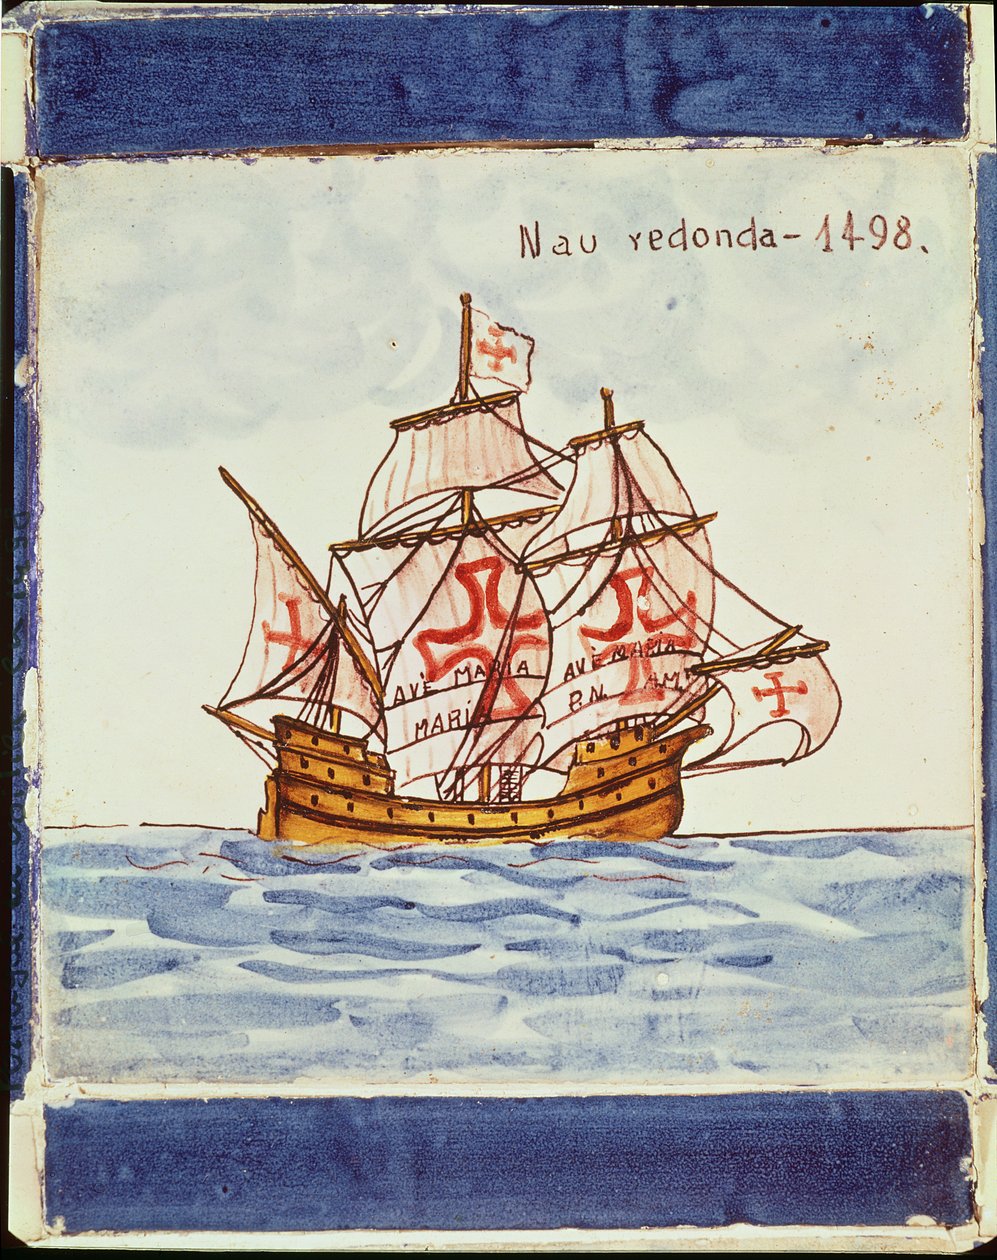 Nau redonda - 1498.
AVÈ MARIA
MARI
AVÈ MARIA
P.N. A.M.